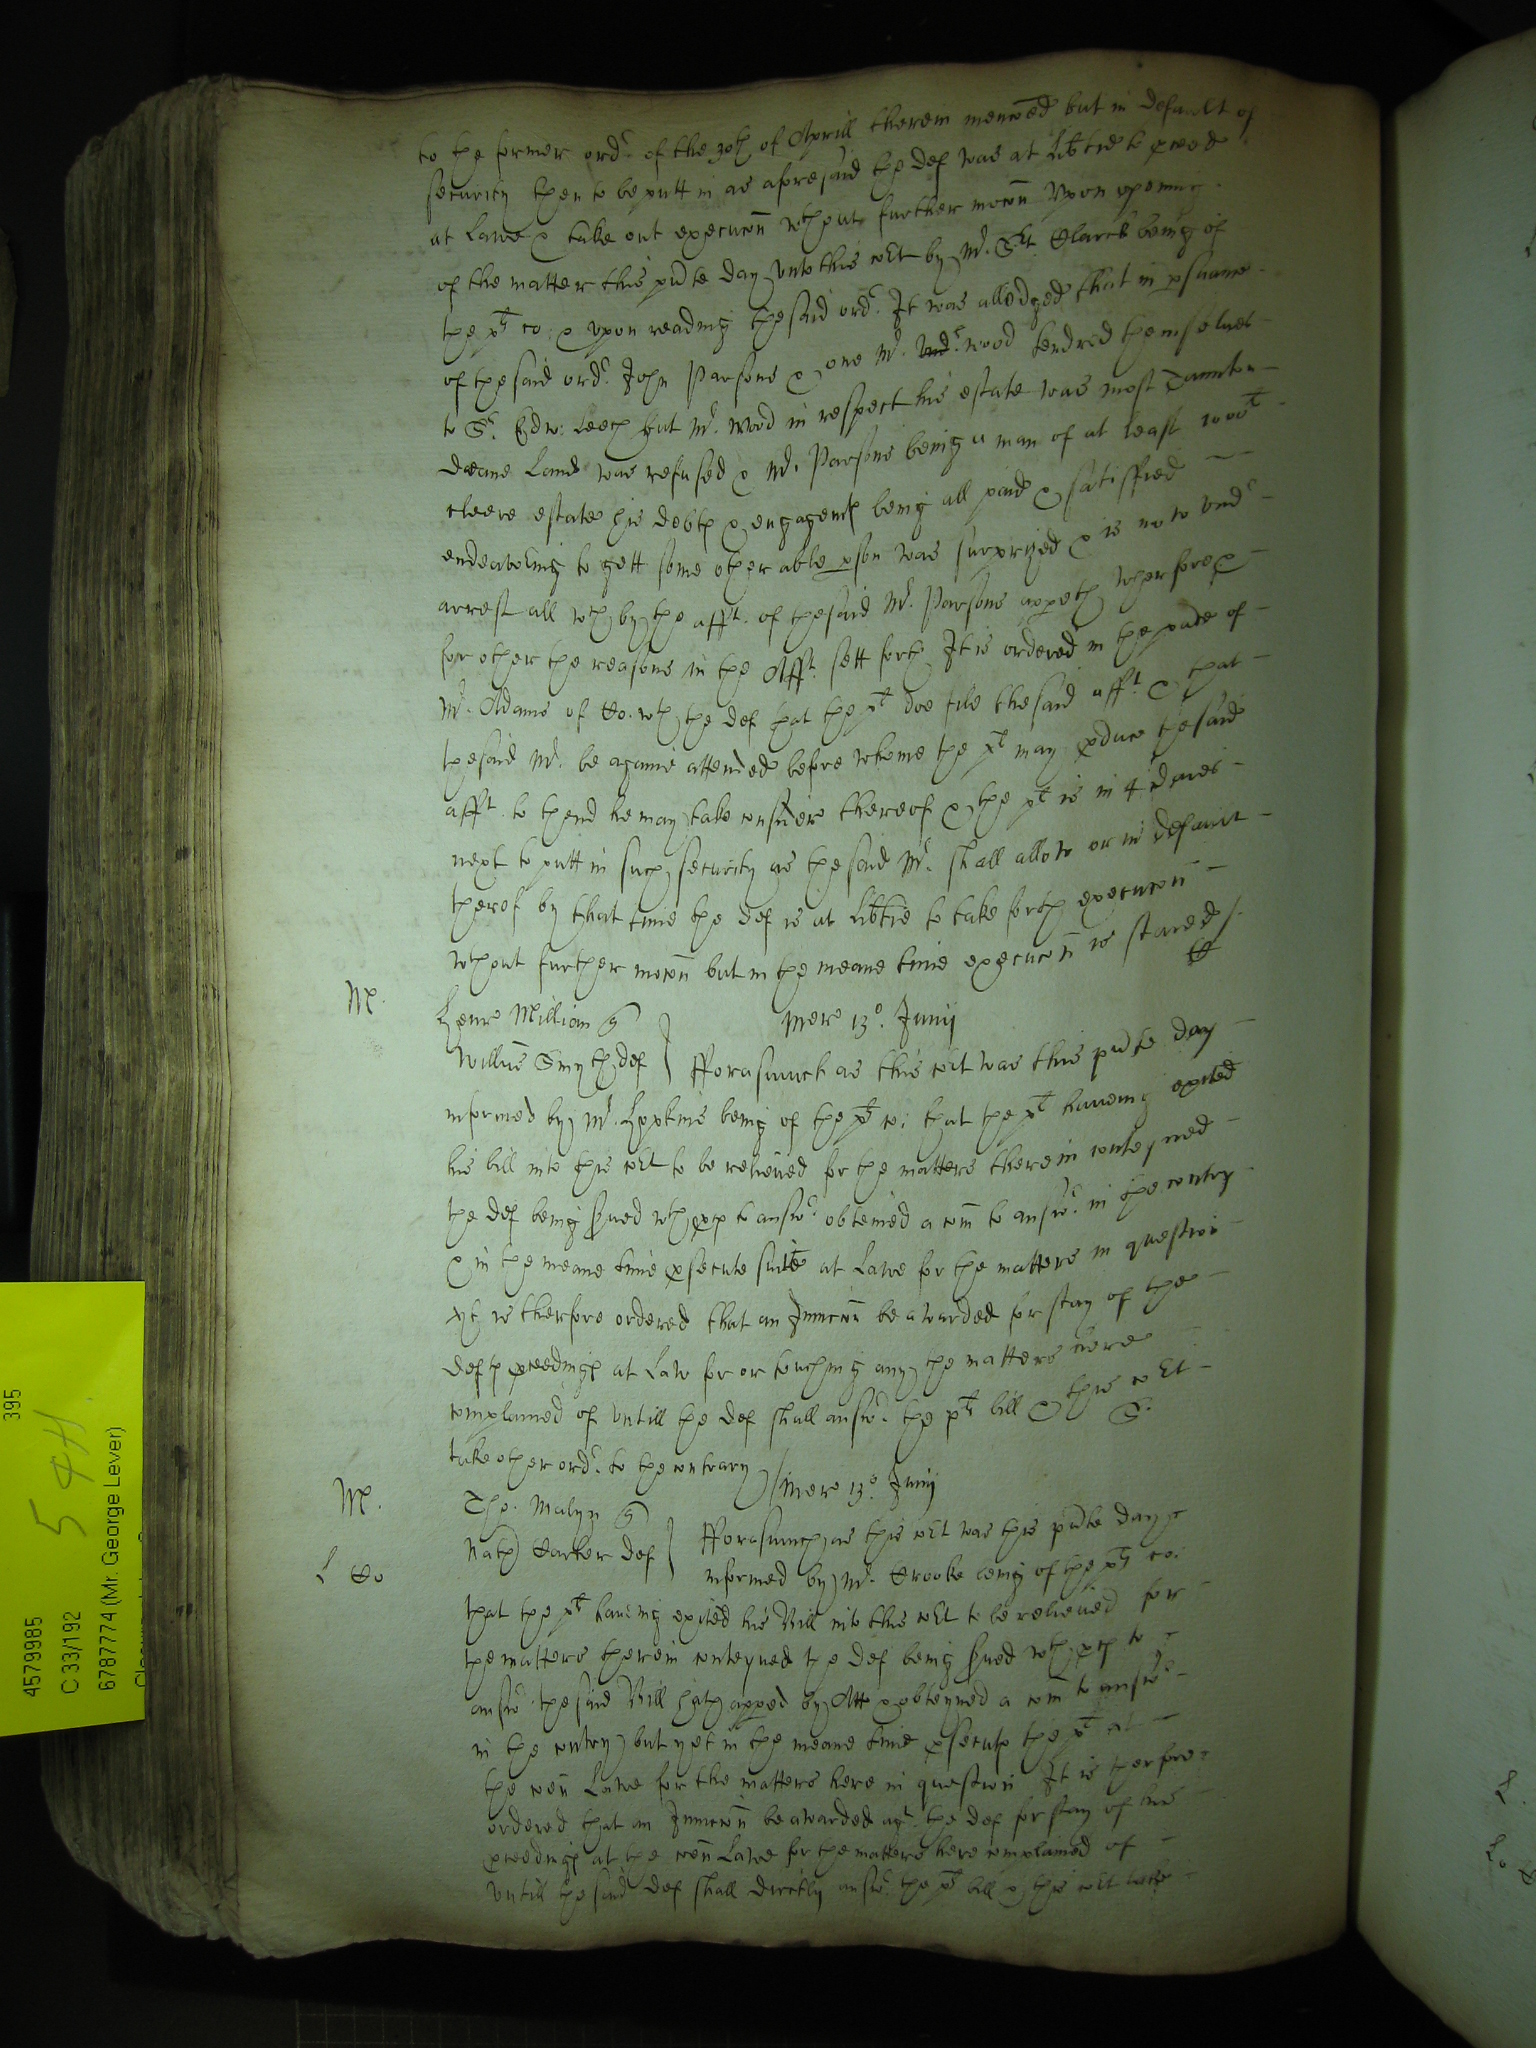 to the former ordr. of the 30th of Aprill therein mencoed but in default of
security then to be putt in as aforesaid the def was at Libtie to pceed
at Lawe & take out execucon wthout further mocon Vpon opening
of the matter this pnte day vnto this coLt by Mr. Sit. Clarck being of
the plts co: & vpon reading the said ordr. It was alledged that in psuance
of the said ordr. John Parsons & one Mr. wood tendred themselues
to Sr. Edw: Leech but Mr. Wood in respect his estate was most Taunton
deane Lands was refused & Mr. Parsons being a man of at least 1000l
cleere estate his debts & engagemts being all paid & satisffied
endeavoring to gett some other able pson was surprized & is now vndr
arrest all wch by the afft. of the said Mr. Parsons appeth Wherfore &
for other the reasons in the Afft. sett forth It is ordered in the pnce of
Mr. Adams of Co. wth the def that the plt doe file the said afft. & that
the said Mr. be againe attended before whome the plt may pduce the said
afft. to thend he may take consideron thereof & the plt is in 4 daies
next to putt in such security as the said Mr. shall allow or in default
therof by that time the def is at Libtie to take forth execucon
wthout further mocon but in the meane time execucon is staied/.
M.
Henr Willian q
Mer 13o. Junij
Willm Smyth def
fforasmuch as this coLt was this pnte day
informed by Mr. Hopkins being of the plts co: that the plt haueing exited
his bill into this coLt to be relieued for the matters therein conteyned
the def being serued wth pces to answr. obteined a com to answr. in the contry
& in the meane time psecute suite at Lawe for the matters in question
yt is therfore ordered that an Iniuncon be awarded for stay of the
defts pceedings at Law for or touching any the matters here
complained of vntill the def shall answr. the plts bill & this coLt
take other ordr. to the contrary/
S.
M.
Mer 13o. Junij
Tho. Malyn q
Nath Barker def
fforasmuch as this coLt was this pnte day
L Co
informed by Mr. Crooke being of the plts co:
that the plt hauing exited his Bill into this coLt to be relieued for
the matters therein conteyned the def being serued wth pces to
answr the said Bill hath apped by Att & obteyned a com to answr
in the contry but yet in the meane time psecuts the plt at
the coen Lawe for the matters here in question It is therfore
ordered that an Iniuncon be awarded agt. the def for stay of his
pceedings at the coen Lawe for the matters here complained of
vntill the said def shall directly answr. the plts bill & this coLt take
395
54H.
4579985
C 33/192
6787774 (Mr. George Lever)